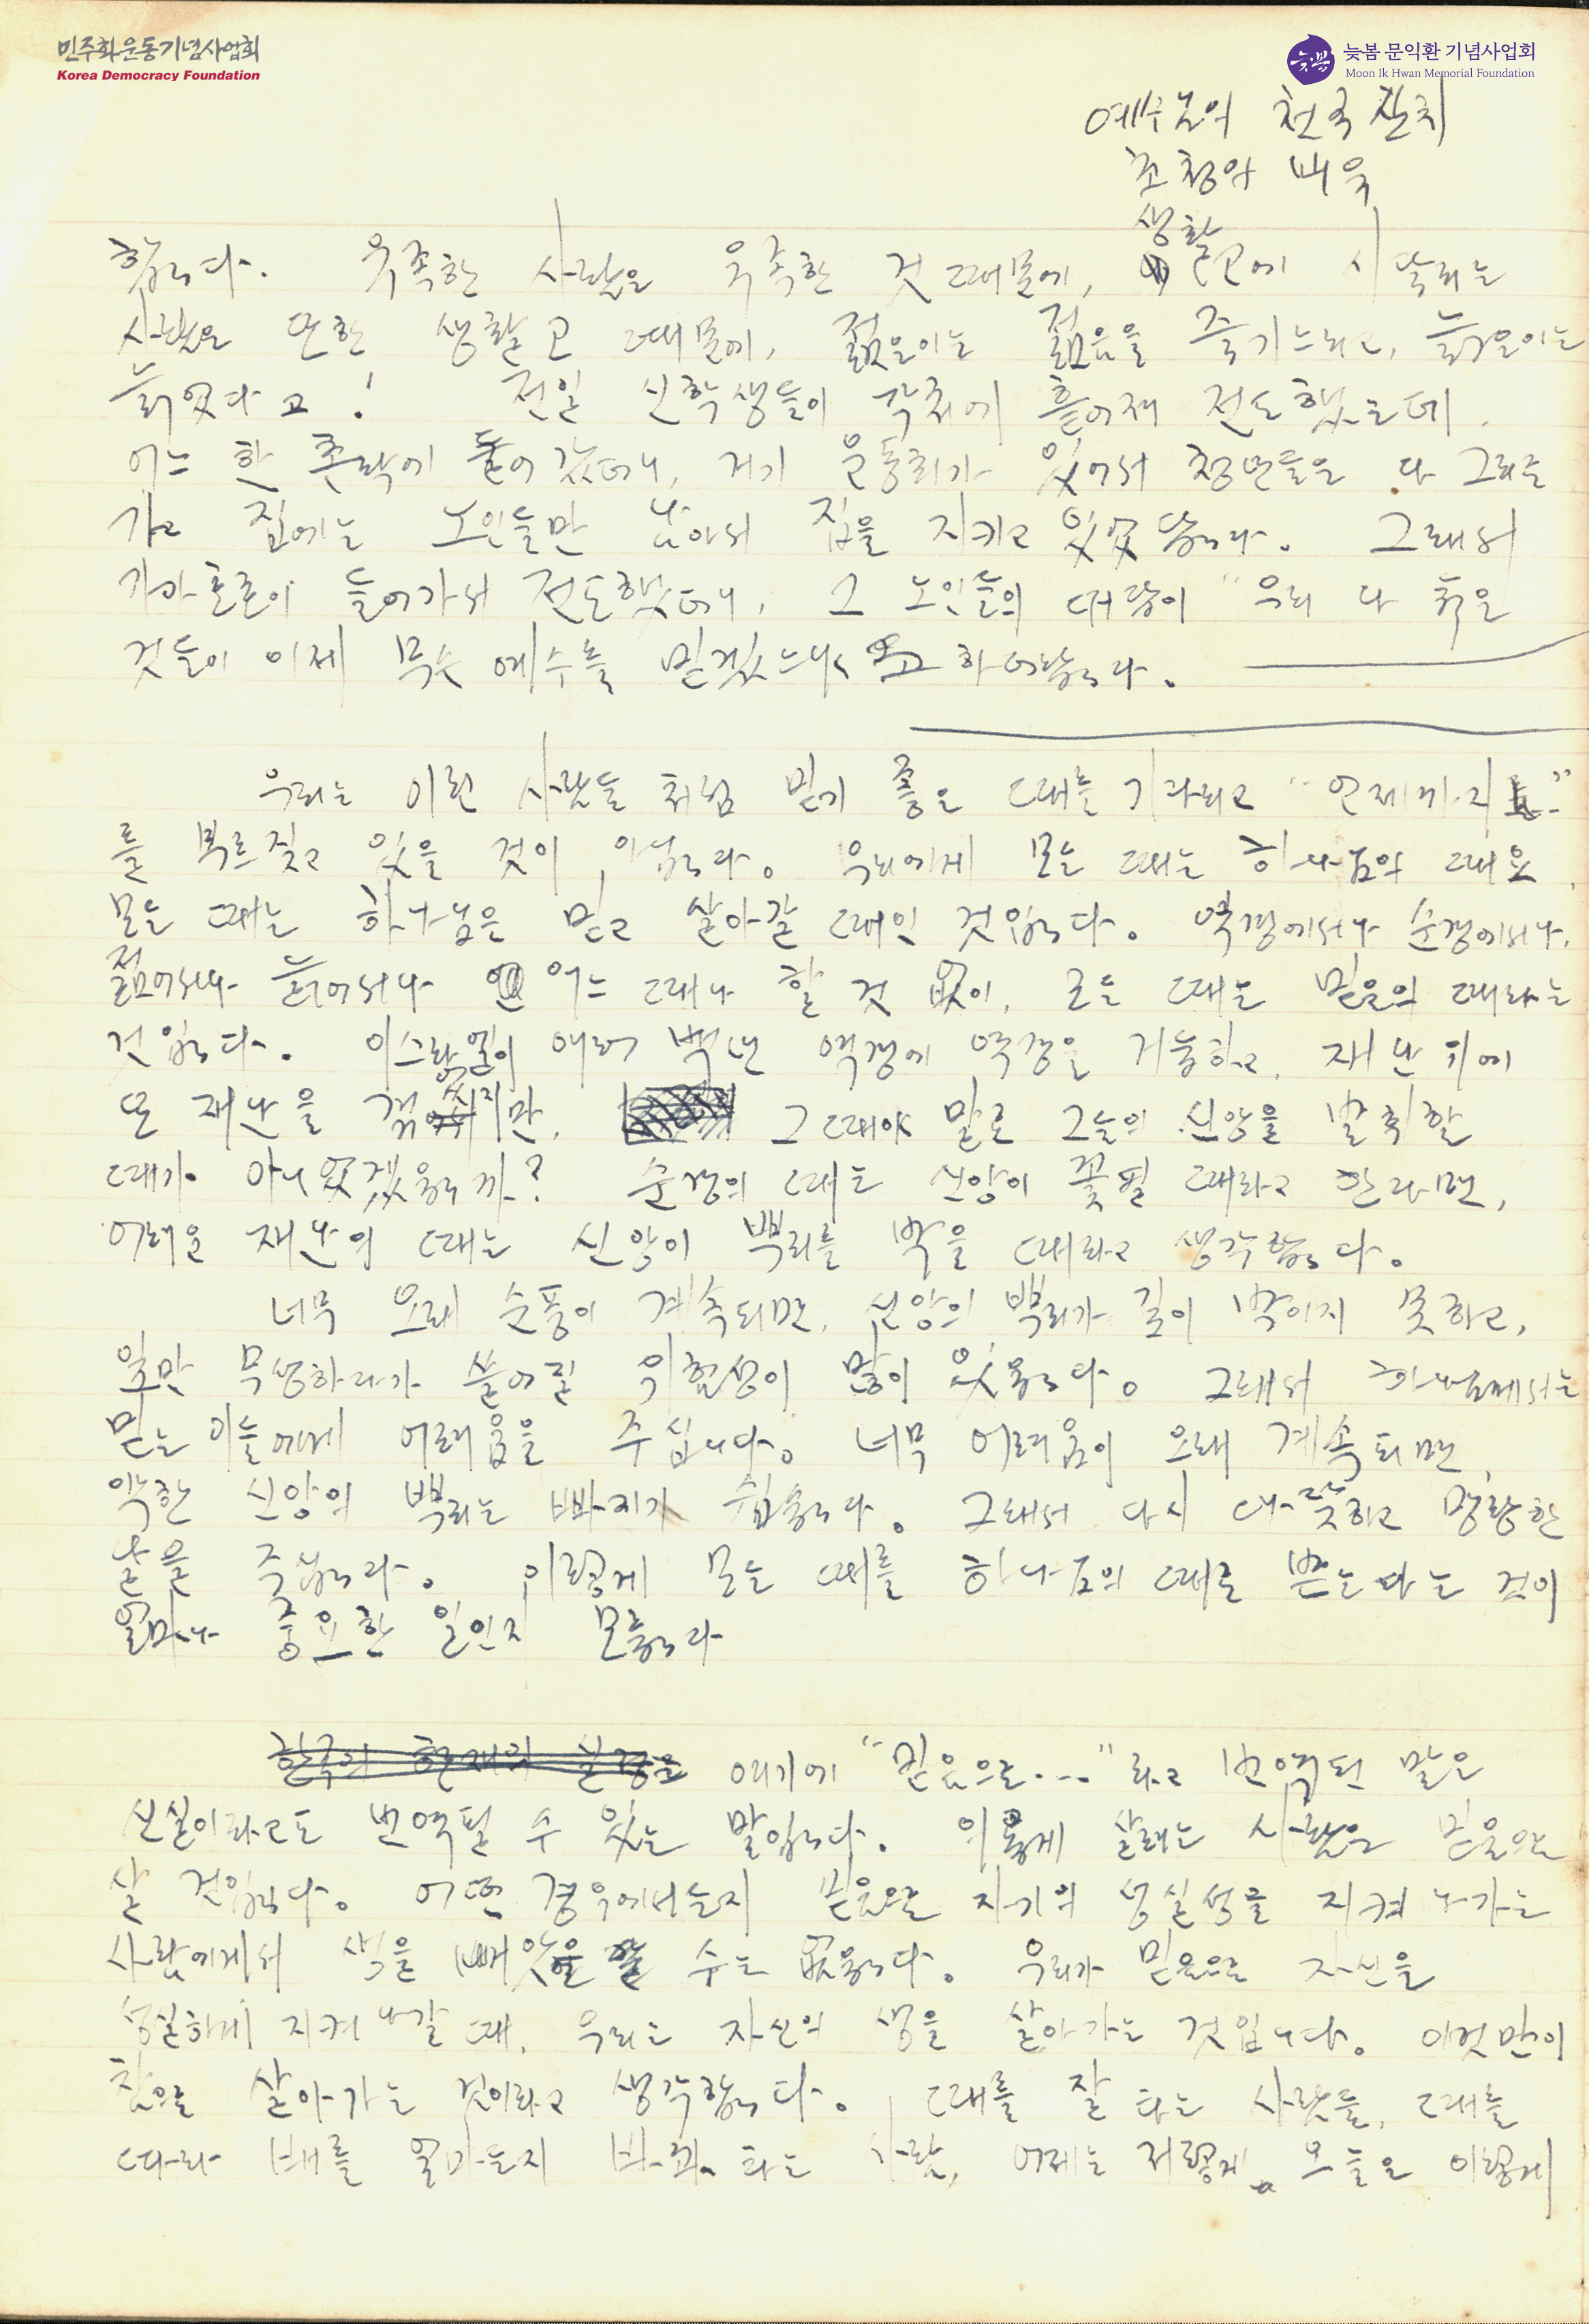 민주화운동기념사업회
Korea Democracy Foundation
늦봄 문익환 기념사업회
Moon Ik Hwan Memorial Foundation
예수님의 천국 잔치
초청의 비유
생활
합니다. 유족한 사람은 유족한 것 때문에, 고에 시달리는
사람은 또한 생활고 때문에, 젊은이는 젊음을 즐기느라고, 늙은이는
늙었다고! 전일 신학생들이 각처에 흩어져 전도했는데,
어느 한 촌락에 들어갔더니, 거기 운동회가 있어서 청년들은 다 그리로
가고 집에는 노인들만 남아서 집을 지키고 있었답니다. 그래서
가가호호이 들어가서 전도했더니, 그 노인들의 대답이 "우리 다 늙은
것들이 이제 무슨 예수를 믿겠느냐고 하더랍니다.
우리는 이런 사람들 처럼 믿기 좋은 때를 기다리고 "언제까지"
를 부르짖고 있을 것이 아닙니다. 우리에게 모든 때는 하나님의 때요,
모든 때는 하나님을 믿고 살아갈 때인 것입니다. 역경에서나 순경에서나,
젊어서나 늙어서나 어느 때나 할 것 없이, 모든 때는 믿음의 때라는
것입니다. 이스라엘이 여러 백년 역경에 역경을 거듭하고, 재난 위에
온 재난을 겪었지만, 그때야 말로 그들의 신앙을 발휘할
때가 아니었겠읍니까? 순경의 때는 신앙이 꽃필 때라고 한다면,
어려운 재난의 때는 신앙이 뿌리를 박을 때라고 생각합니다.
너무 오래 순풍이 계속되면, 신앙의 뿌리가 깊이 박이지 못하고,
잎만 무성하다가 쓸어질 위험성이 많이 있읍니다. 그래서 하나님께서는
믿는 이들에게 어려움을 주십니다. 너무 어려움이 오래 계속되면,
약한 신앙의 뿌리는 빠지기 쉽습니다. 그래서 다시 따뜻하고 명랑한
날을 주십니다. 이렇게 모든 때를 하나님의 때로 받는다는 것이
얼마나 중요한 일인지 모릅니다
한국의 현재의 실정을 여기에 "믿음으로..."라고 번역된 말은
신실이라고도 번역될 수 있는 말입니다. 의롭게 살려는 사람은 믿음으로
살 것입니다. 어떤 경우에서든지 믿음으로 자기의 성실성을 지켜 나가는
사람에게서 생을 빼앗을 수는 없읍니다. 우리가 믿음으로 자신을
성실하게 지켜 나갈 때, 우리는 자신의 생을 살아가는 것입니다. 이것만이
참으로 살아가는 것이라고 생각합니다. 때를 잘 타는 사람들, 때를
따라 배를 얼마든지 바꿔 타는 사람, 어제는 저렇게, 오늘은 이렇게